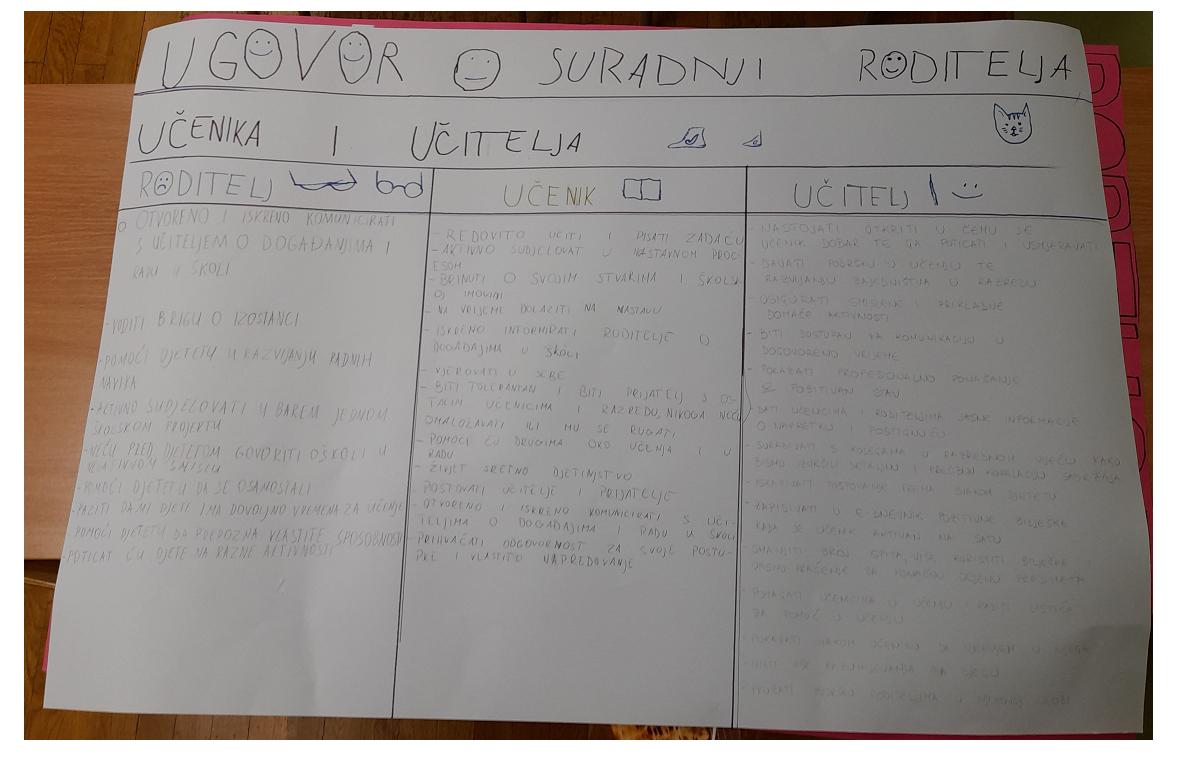 UGOVOR O SURADNJI RODITELJA
UČENIKA I UČITELJA
RODITELJ
O OTVORENO I ISKRENO KOMUNICIRATI
S UČITELJEM O DOGAĐANJIMA I
RADU U ŠKOLI
-VODITI BRIGU O IZOSTANCI
-POMOĆI DJETETU U RAZVIJANJU RADNIH
NAVIKA
-AKTIVNO SUDJELOVATI U BAREM JEDNOM
ŠKOLSKOM PROJEKTU
-NEĆU PRED DJETETOM GOVORITI O ŠKOLI U
NEGATIVNOM SMISLU
-POMOĆI DJETETU DA SE OSAMOSTALI
-PAZITI DA MI DJETE IMA DOVOLJNO VREMENA ZA UČENJE
-POMOĆI DJETETU DA PREPOZNA VLASTITE SPOSOBNOSTI
POTICAT ĆU DJETE NA RAZNE AKTIVNOSTI
UČENIK
- REDOVITO UČITI I PISATI ZADAĆU
-AKTIVNO SUDJELOVAT U NASTAVNOM PROC-
ESOM
-BRINUTI O SVOJIM STVARIMA I ŠKOLSK-
OJ IMOVINI
-NA VRIJEME DOLAZITI NA NASTAVU
ISKRENO INFORMIRATI RODITELJE O
DOGAĐAJIMA U ŠKOLI
- VJEROVATI U SEBE
- BITI TOLERANTAN I BITI PRIJATELJ S OS-
TALIM UČENICIMA I RAZREDU, NIKOGA NEĆU
OMALOŽAVATI ILI MU SE RUGATI
- POMOĆI ĆU DRUGIMA OKO UČENJA I U
RADU
- ŽIVJET SRETNO DJETINJSTVO
- POŠTOVATI UČITELJE I PRIJATELJE
- OTVORENO I ISKRENO KOMUNICIRATI S UČI-
TELJIMA O DOGAĐAJIMA I RADU U ŠKOLI
PRIHVAĆATI ODGOVORNOST ZA SVOJE POSTU-
PKE VLASTITO NAPREDOVANJE
UČITELJ
- NASTOJATI OTKRITI U ČEMU JE
UČENIK DOBAR TE GA POTICATI I USMJERAVATI
- DAVATI PODRŠKU U UČENJU TE
RAZVIJANJU ZAJEDNIŠTVA U RAZREDU
- OSIGURATI SMISLENE I PRIKLADNE
DOMAĆE AKTIVNOSTI
- BITI DOSTUPAN ZA KOMUNIKACIJU U
DOGOVORENO VRIJEME
- POKAZATI PROFESIONALNO PONAŠANJE
POZITIVAN STAV
- DATI UČENICIMA I RODITELJIMA JASNE INFORMACIJE
O NAPRETKU I POSTIGNUĆU
- SURAĐIVATI S KOLEGAMA U RAZREDNOM VIJEĆU KAKO
BISMO IZVRŠILI DETALJNU I KORELACIJU SADRŽAJA
- ISKAZIVATI POŠTOVANJE PREMA SVAKOM DJETETU
- ZAPISIVATI U E-DNEVNIK POZITIVNE BILJEŠKE
KADA JE UČENIK AKTIVAN NA SATU
- SMANJITI BROJ ISPITA, VIŠE KORISTITI BILJEŠKE I
OPISNO PRAĆENJE ZA KONAČNU OCJENU PREDMETA
- POMAGATI UČENICIMA U UČENJU I RADITI LISTIĆE
ZA POMOĆ U UČENJU
- POKAZATI SVAKOM UČENIKU DA VJERUJEM U NJEGA
- IMATI VIŠE RAZUMIJEVANJA ZA DJECU
- PRUŽATI PODRŠKU RODITELJIMA U NJIHOVOJ ULOZI